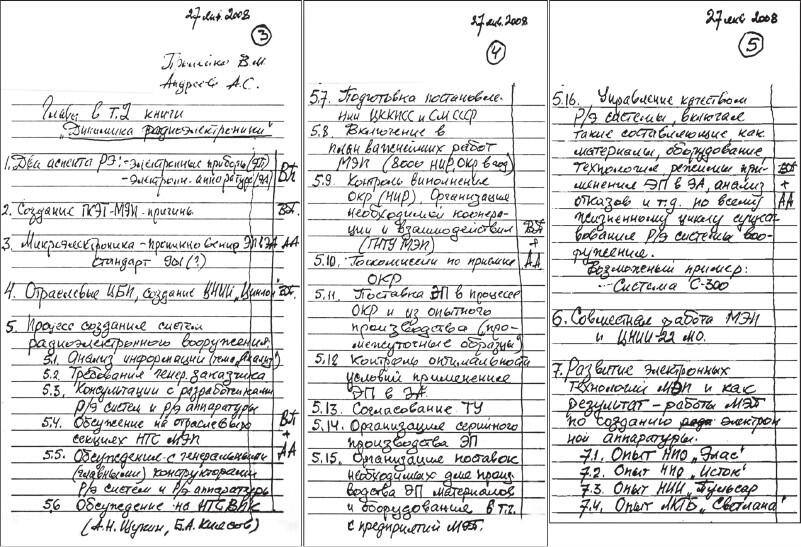 27 янв. 2008
3
В.М.
Андреев А.С.
Главы в т.2 книги
"Динамика радиоэлектроники"
1. Два аспекта РЭ: - электронные приборы (ЭП)
- электрон. аппаратура (ЭА)
ВП
2. Создание ГКЭТ-МЭП - причины
ВП
3. Микроэлектроника - проникновение ЭП в ЭА
АА
стандарт (?)
4. Отраслевые ЦБП, создание ВНИИ
ВП.
5. Процесс создания систем
радиоэлектронного вооружения.
5.1. Анализ информации
5.2. Требование генер. заказчика
5.3. Консультации с разработчиками
Р/Э систем и Р/Э аппаратуры
5.4. Обсуждение на отраслевых
секциях НТС МЭП
ВП
+
АА
5.5. Обсуждение с генеральными
(главными) конструкторами
Р/Э систем и Р/Э аппаратуры
5.6 Обсуждение на НТС ВПК
(А.Н. Щукин, Б.А. Киясов)
27 янв. 2008
4
5.7. Подготовка постановле-
ний ЦК КПСС и СМ СССР
5.8. Включение в
план важнейших работ
МЭП (8000 НИР, ОКР в год)
5.9. Контроль выполнения
ОКР (НИР). Организация
необходимой коопера-
ции и взаимодействия
(ГНТУ МЭП)
ВП
+
АА
5.10. Госкомиссии по приемке
ОКР
5.11. Поставка ЭП в процессе
ОКР и из опытного
производства (про-
межуточные образцы)
5.12 Контроль оптимальности
условий применения
ЭП в ЭА.
5.13. Согласование ТУ
5.14. Организация серийного
производства ЭП
5.15. Организация поставок
необходимых для произ-
водства ЭП материалов
и оборудования в т.ч.
с предприятий МЭП.
27 янв 2008
5
5.16. Управление качеством
Р/Э системы, включая
такие составляющие как
материалы, оборудование,
технология, режимы при-
менения ЭП в ЭА, анализ
отказов и т.д. по всему
жизненному циклу сущест-
вования Р/Э системы воо-
ружения.
ВП
+
АА
Возможный пример:
- Система С-300
6. Совместная работа МЭП
и ЦНИИ-22 МО.
7. Развитие электронных
технологий МЭП и как
результат - работы МЭП
по созданию электрон
ной аппаратуры.
7.1. Опыт НПО "Элас"
7.2. Опыт НПО "Исток"
7.3. Опыт НИИ "Пульсар
7.4. Опыт ЛКТБ "Светлана"